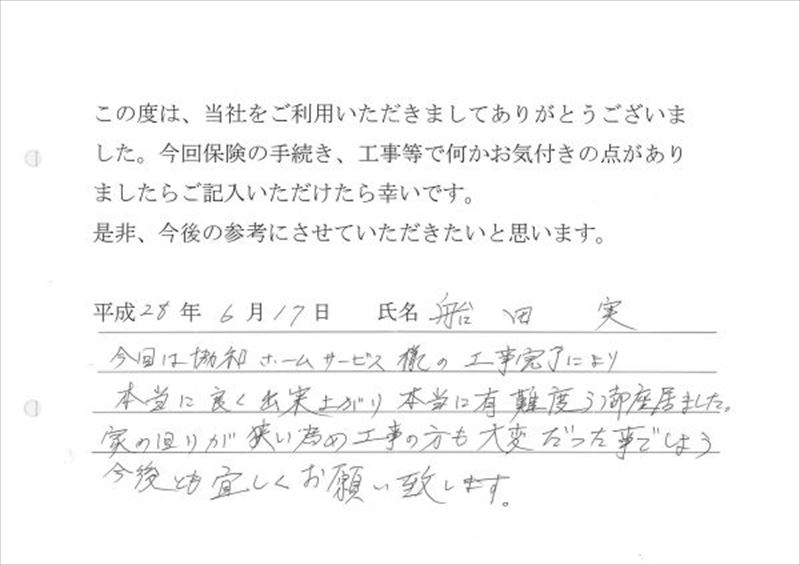 この度は、当社をご利用いただきましてありがとうございま
した。今回保険の手続き、工事等で何かお気付きの点があり
ましたらご記入いただけたら幸いです。
是非、今後の参考にさせていただきたいと思います。
平成28年 6月17日 氏名 船田 実
今回は協和ホームサービス様の工事完了により
本当に良く出来上がり本当に有難度う御座居ました。
家の回りが狭い為め工事の方も大変だった事でしょう
今後とも宜しくお願い致します。